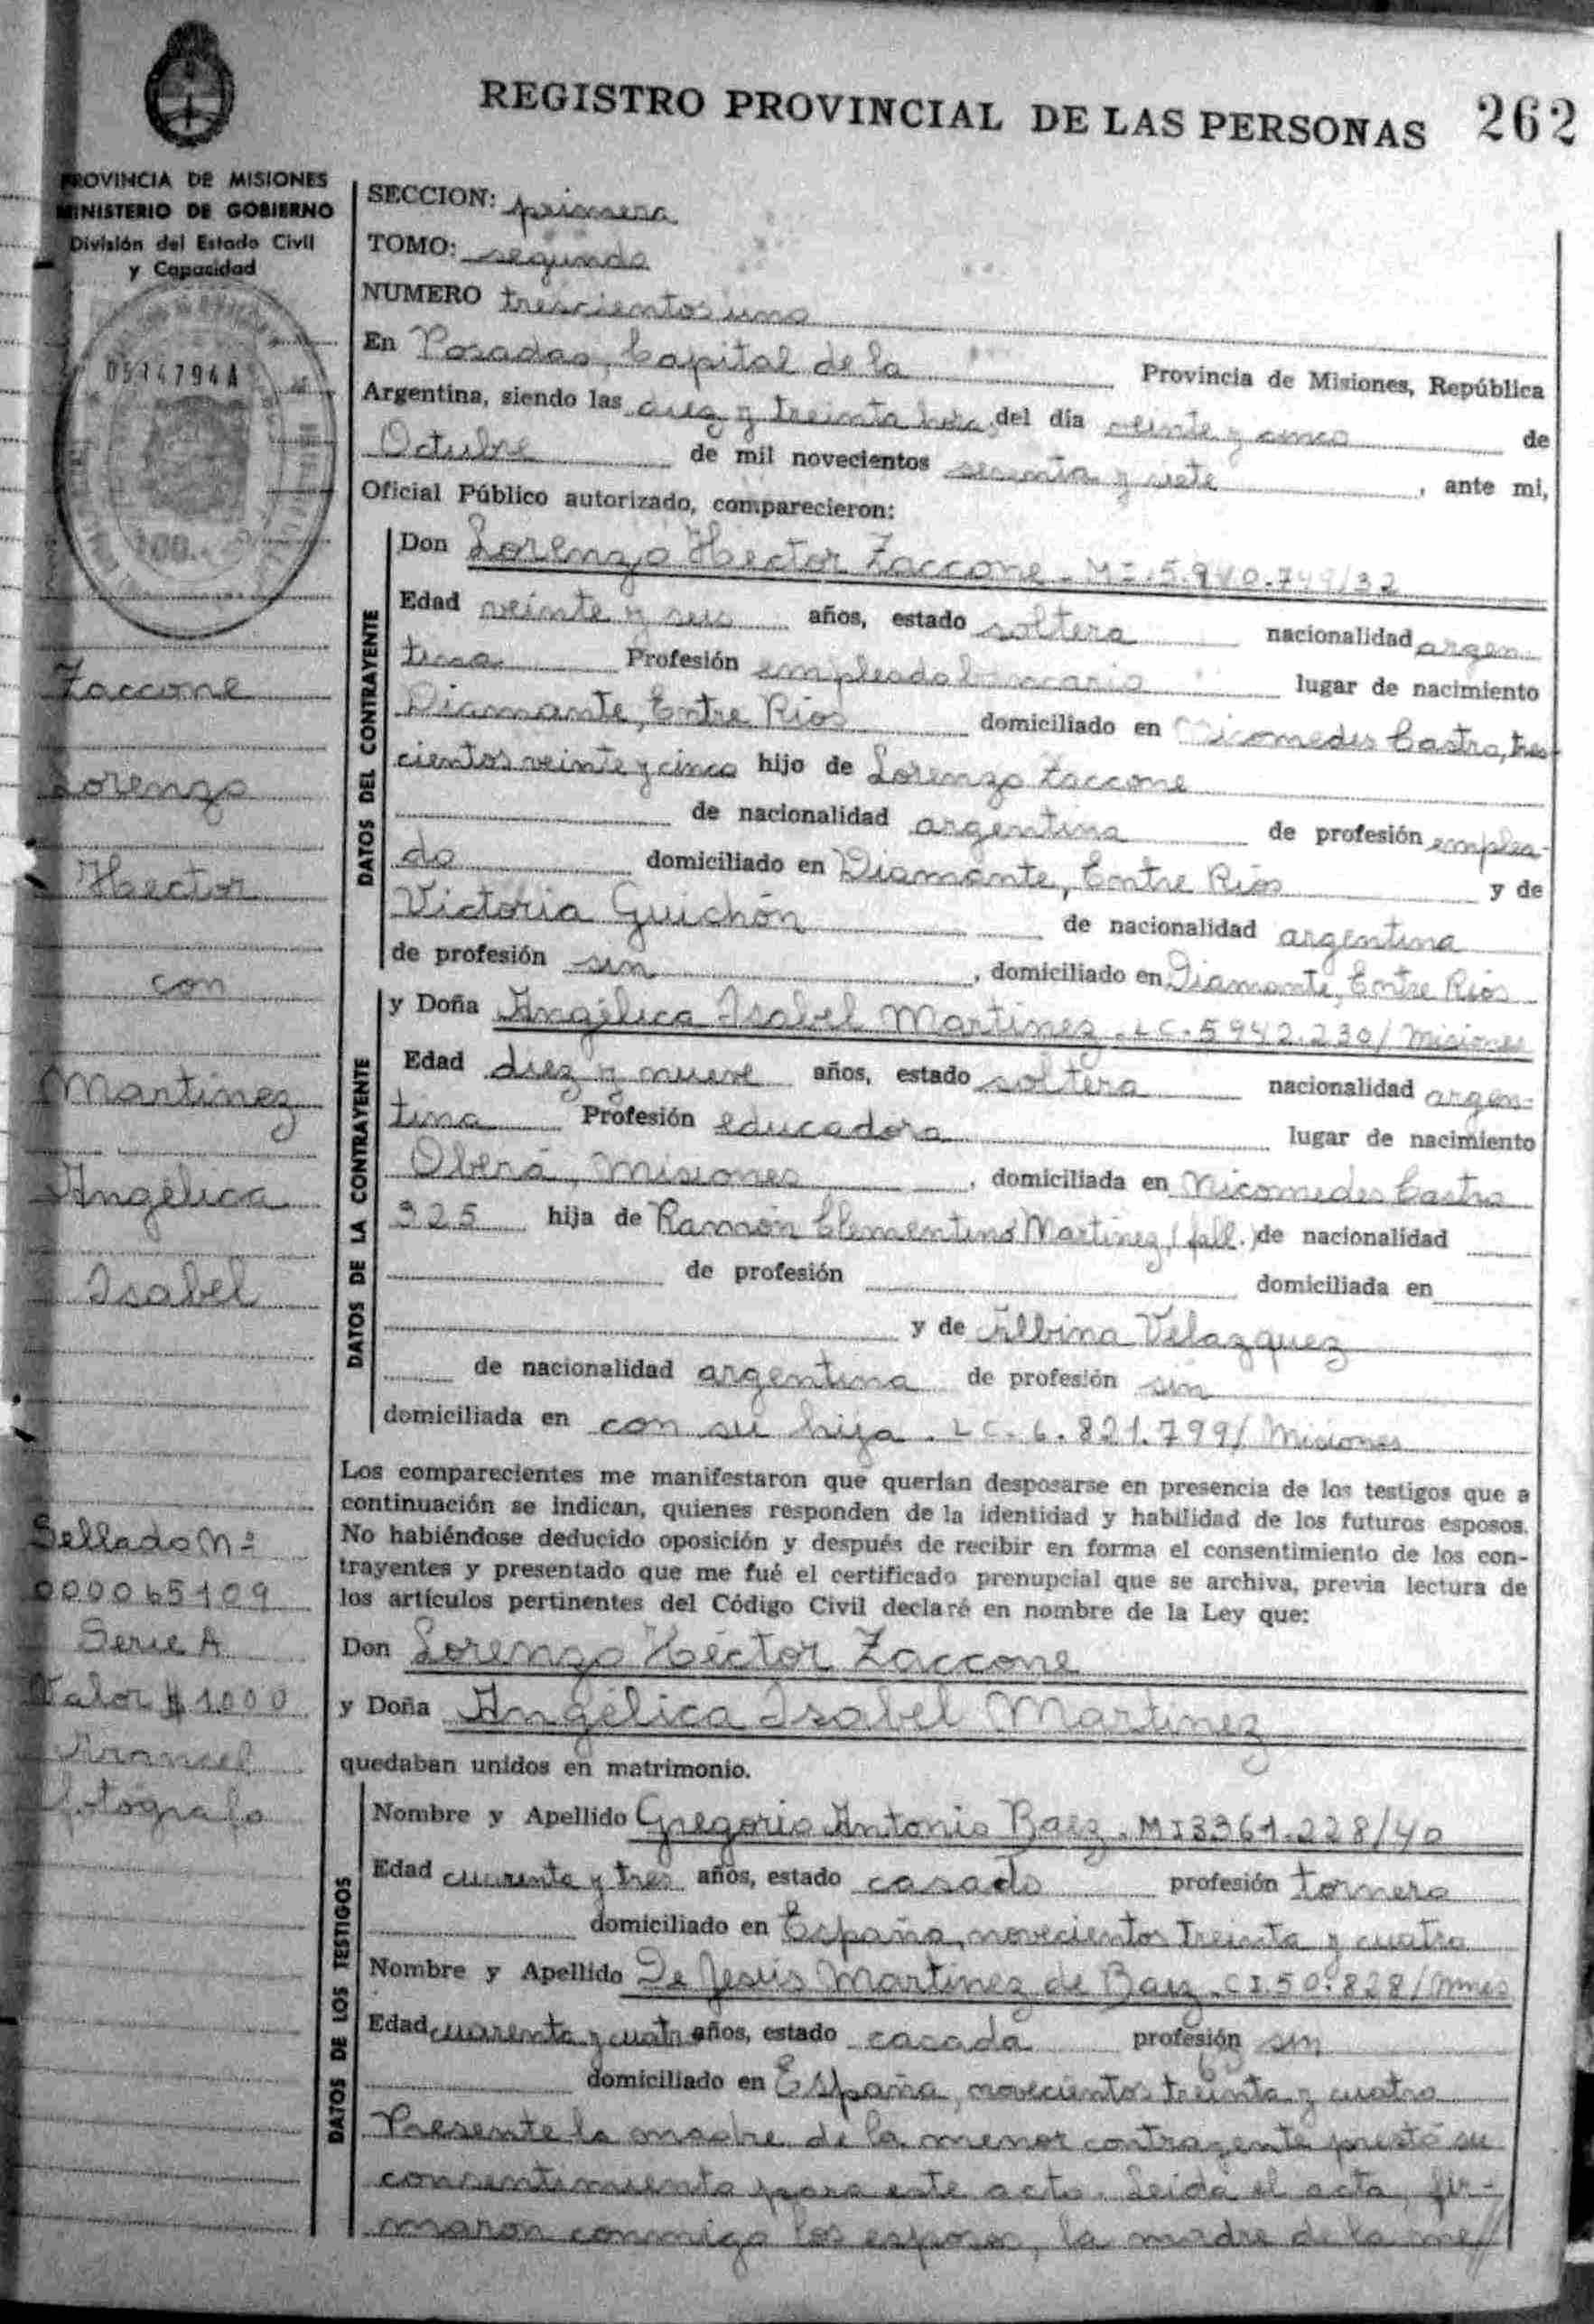 REGISTRO PROVINCIAL DE LAS PERSONAS 262
PROVINCIA DE MISIONES
MINISTERIO DE GOBIERNO
División del Estado Civil
y Capacidad
0514794A
100.-
Zaccone
Lorenzo
Hector
con
Martinez
Angélica
Isabel
Sellado Nº
000065109
Serie A
Valor $ 1000
Arancel
fotógrafo
SECCION: primera
TOMO: segundo
NUMERO trescientos uno
En Posadas, Capital de la Provincia de Misiones, República
Argentina, siendo las diez y treinta horas del día veinte y cinco de
Octubre de mil novecientos sesenta y siete, ante mi,
Oficial Público autorizado, comparecieron:
DATOS DEL CONTRAYENTE
Don Lorenzo Hector Zaccone - MI.5.940.749/32
Edad veinte y seis años, estado soltero nacionalidad argen-
tina Profesión empleado bancario lugar de nacimiento
Diamante, Entre Rios domiciliado en Nicomedes Castro, tres-
cientos veinte y cinco hijo de Lorenzo Zaccone
de nacionalidad argentina de profesión emplea-
do domiciliado en Diamante, Entre Rios y de
Victoria Guichón de nacionalidad argentina
de profesión sin, domiciliado en Diamante, Entre Rios
DATOS DE LA CONTRAYENTE
y Doña Angélica Isabel Martinez - LC.5942.230/Misiones
Edad diez y nueve años, estado soltera nacionalidad argen-
tina Profesión educadora lugar de nacimiento
Oberá, Misiones, domiciliada en Nicomedes Castro
325 hija de Ramón Clementino Martinez (fall.) de nacionalidad
de profesión domiciliada en
y de Albina Velazquez
de nacionalidad argentina de profesión sin
domiciliada en con su hija. LC.6.821.799/Misiones
Los comparecientes me manifestaron que querían desposarse en presencia de los testigos que a
continuación se indican, quienes responden de la identidad y habilidad de los futuros esposos.
No habiéndose deducido oposición y después de recibir en forma el consentimiento de los con-
trayentes y presentado que me fué el certificado prenupcial que se archiva, previa lectura de
los artículos pertinentes del Código Civil declaré en nombre de la Ley que:
Don Lorenzo Héctor Zaccone
y Doña Angélica Isabel Martinez
quedaban unidos en matrimonio.
DATOS DE LOS TESTIGOS
Nombre y Apellido Gregorio Antonio Baez - MI3361.228/40
Edad cuarenta y tres años, estado casado profesión tornero
domiciliado en España, novecientos treinta y cuatro
Nombre y Apellido De Jesús Martinez de Baez - CI.50.828/Mnes
Edad cuarenta y cuatro años, estado casada profesión sin
domiciliado en España, novecientos treinta y cuatro
Presente la madre de la menor contrayente prestó su
consentimiento para este acto. Leida el acta, fir-
maron conmigo los esposos, la madre de la me//